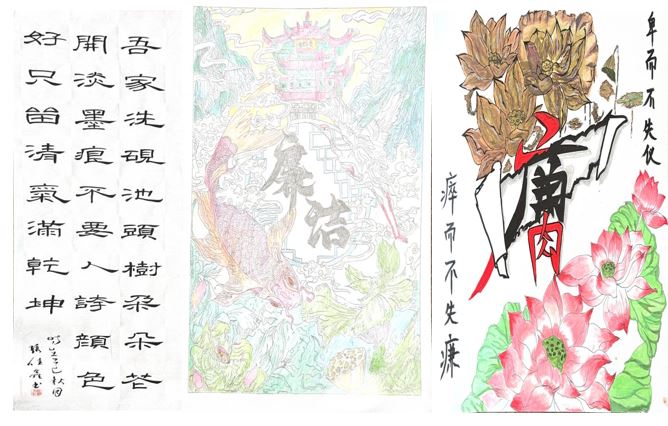 吾家洗硯池頭樹朵朵花
開淡墨痕不要人誇顏色
好只留清氣滿乾坤
廉洁
卑而不失仪
瘁而不失廉